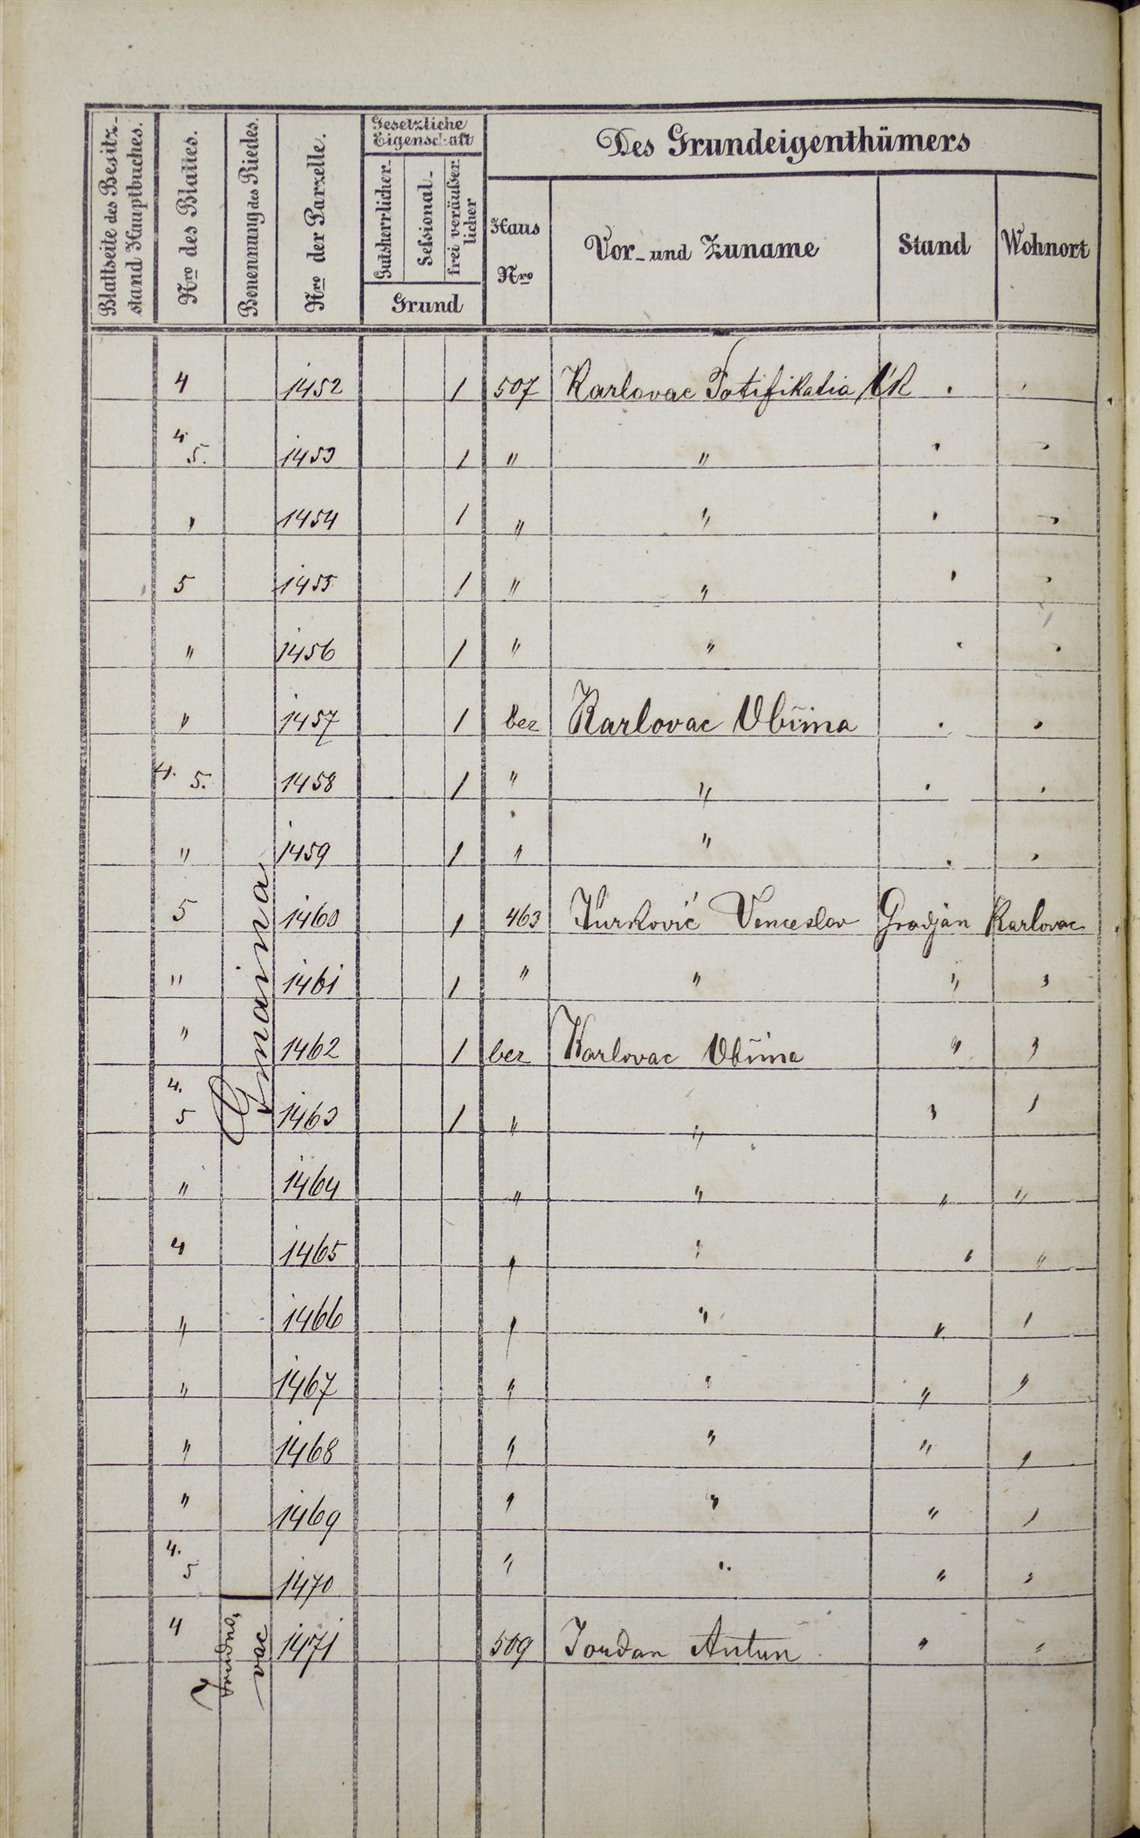 Blattseite des Besitz-
stand Hauptbuches.
Nro des Blattes.
Benennung des Riedes.
Nro der Parzelle.
Gesetzliche
Eigenschaft
Gutsherrlicher-
Sessional-
frei veräußer
licher
Grund
Des Grundeigenthümers
Haus
Nro
Vor- und Zuname
Stand
Wohnort
4 1452 1 507 Karlovac
4 5. 1453 1 " "
" 1454 1 " "
5 1455 1 " "
" 1456 1 " "
" 1457 1 bez Karlovac Občina
4. 5. 1458 1 " "
" 1459 1 " "
Gmaina
5 1460 1 463 Venceslav Gradjan Karlovac
" 1461 1 " " " "
" 1462 1 bez Karlovac Občina " "
4. 5 1463 1 " " " "
" 1464 " " " "
4 1465 " " " "
" 1466 " " " "
" 1467 " " " "
" 1468 " " " "
" 1469 " " " "
4. 5 1470 " " " "
4 1471 509 Jordan Antun " "
vac